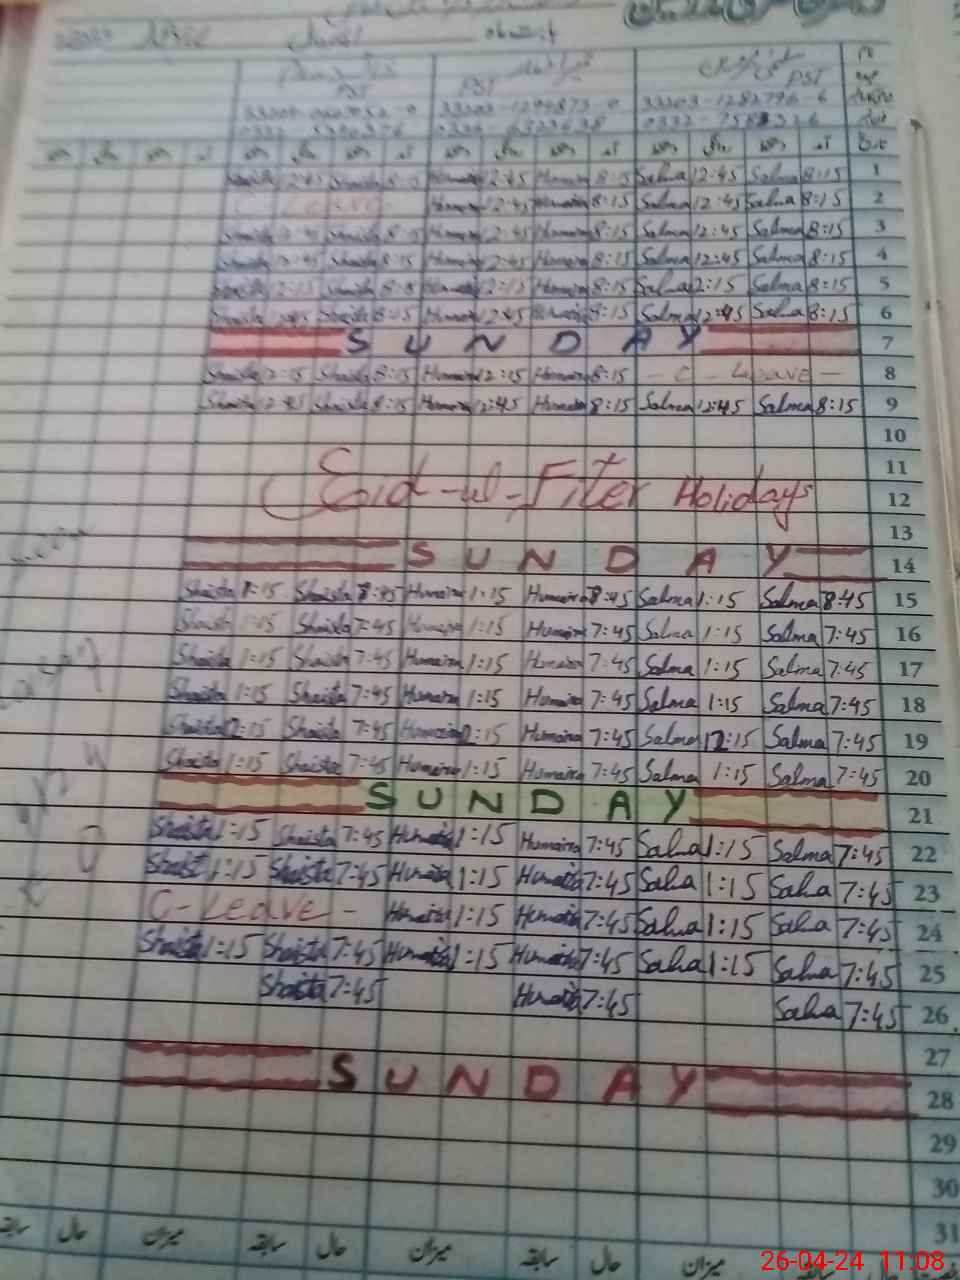 PST PST PST
33203-1294873-0 33203-1282796-6
1
Shaista 12:45 Shaista 8:15 Humaira 12:45 Humaira 8:15 Salma 12:45 Salma 8:15
2
C Leave Humaira 12:45 Humaira 8:15 Salma 12:45 Salma 8:15
3
Shaista 12:45 Shaista 8:15 Humaira 12:45 Humaira 8:15 Salma 12:45 Salma 8:15
4
Shaista 12:45 Shaista 8:15 Humaira 12:45 Humaira 8:15 Salma 12:45 Salma 8:15
5
Shaista 12:15 Shaista Humaira 12:15 Humaira 8:15 Salma 12:15 Salma 8:15
6
Shaista 12:45 Shaista 8:15 Humaira 12:45 Humaira 8:15 Salma 12:45 Salma 8:15
SUNDAY 7
Shaista 12:15 Shaista 8:15 Humaira 12:15 Humaira 8:15 - C - Leave - 8
Shaista 12:45 Shaista 8:15 Humaira 12:45 Humaira 8:15 Salma 12:45 Salma 8:15 9
10
11
Eid-ul-Fiter Holidays 12
13
SUNDAY 14
Shaista 1:15 Shaista 8:45 Humaira 1:15 Humaira 8:45 Salma 1:15 Salma 8:45 15
Shaista 1:15 Shaista 7:45 Humaira 1:15 Humaira 7:45 Salma 1:15 Salma 7:45 16
Shaista 1:15 Shaista 7:45 Humaira 1:15 Humaira 7:45 Salma 1:15 Salma 7:45 17
Shaista 1:15 Shaista 7:45 Humaira 1:15 Humaira 7:45 Salma 1:15 Salma 7:45 18
Shaista 12:15 Shaista 7:45 Humaira 12:15 Humaira 7:45 Salma 12:15 Salma 7:45 19
Shaista 1:15 Shaista 7:45 Humaira 1:15 Humaira 7:45 Salma 1:15 Salma 7:45 20
SUNDAY 21
Shaista 1:15 Shaista 7:45 Humaira 1:15 Humaira 7:45 Salma 1:15 Salma 7:45 22
Shaista 1:15 Shaista 7:45 Humaira 1:15 Humaira 7:45 Salma 1:15 Salma 7:45 23
C- Leave - Humaira 1:15 Humaira 7:45 Salma 1:15 Salma 7:45 24
Shaista 1:15 Shaista 7:45 Humaira 1:15 Humaira 7:45 Salma 1:15 Salma 7:45 25
Shaista 7:45 Humaira 7:45 Salma 7:45 26
27
SUNDAY 28
29
30
31
میزان حال سابقہ میزان حال سابقہ میزان حال سابقہ
26-04-24 11:08